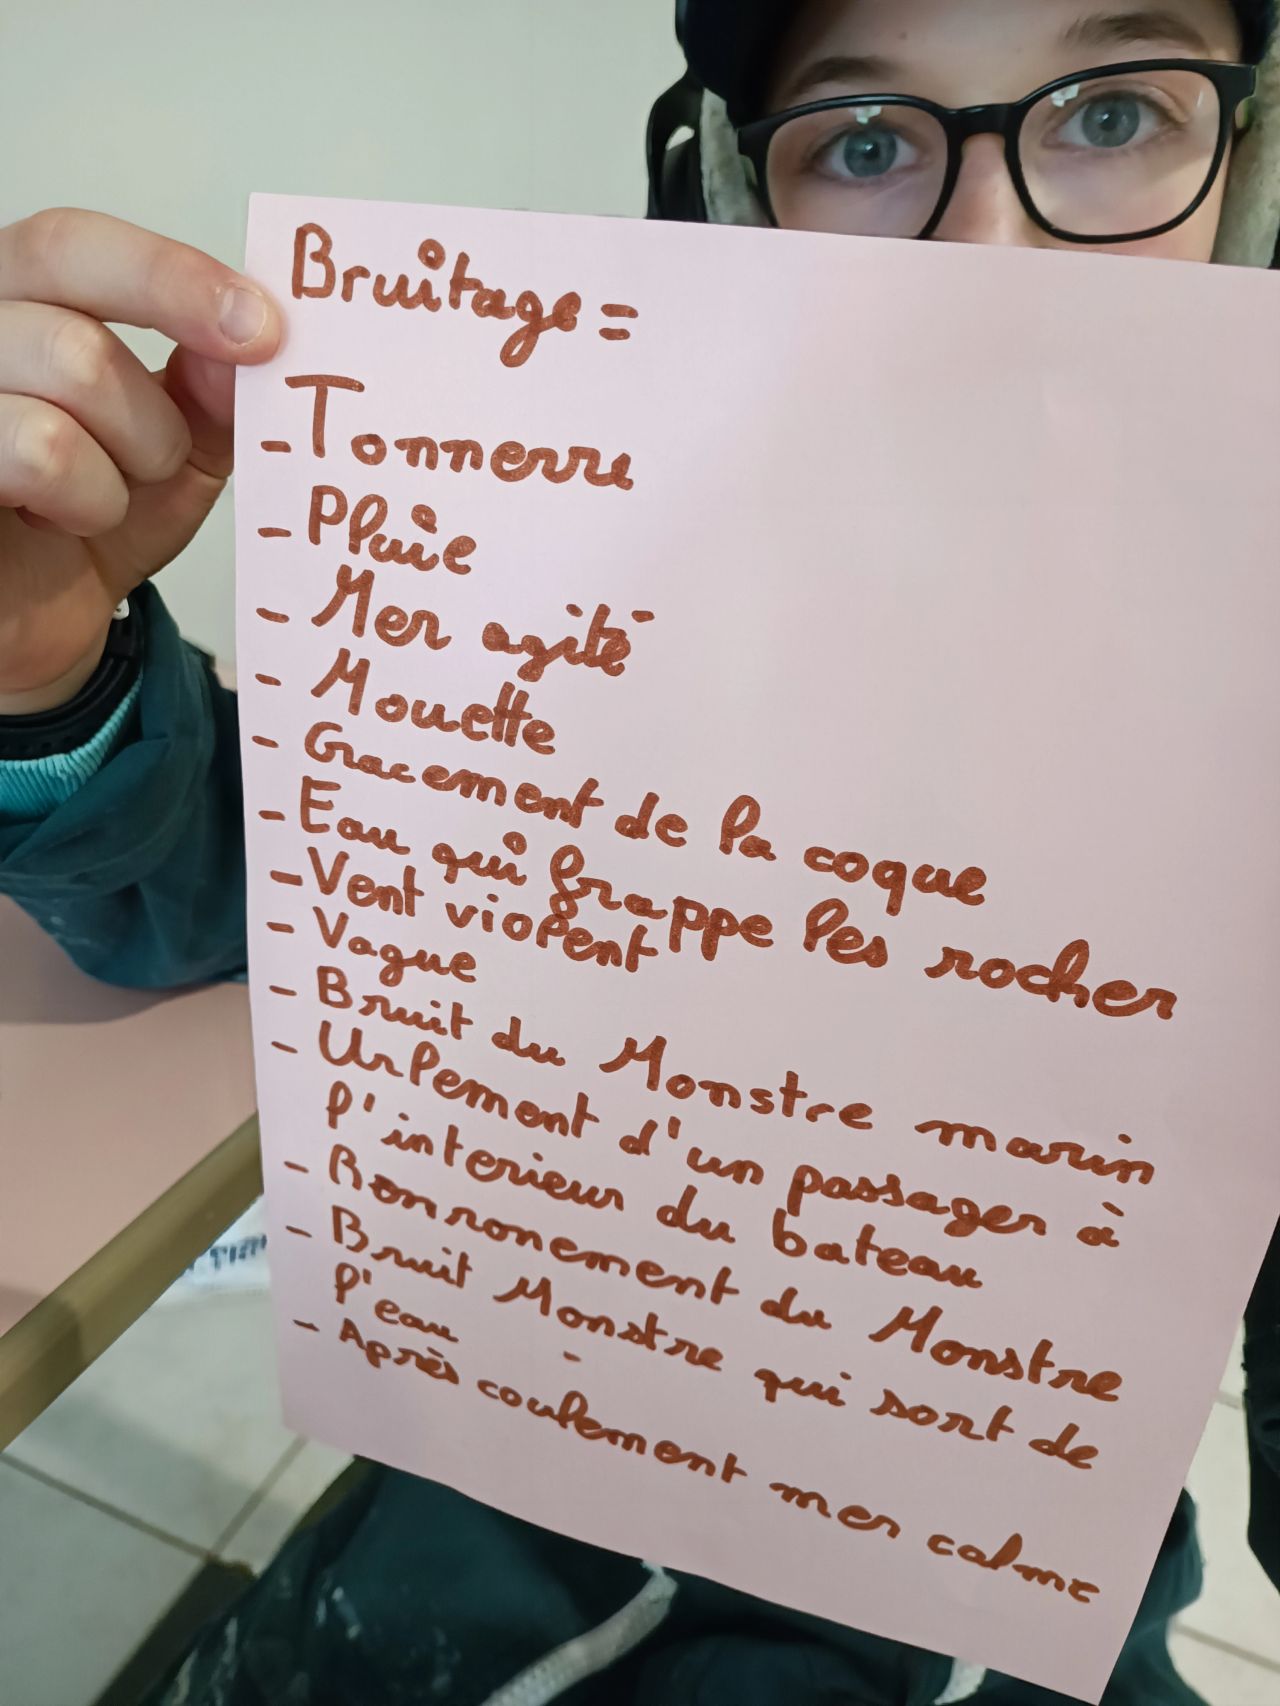 Bruitage =
- Tonnerre
- Pluie
- Mer agité
- Mouette
- Gracement de la coque
- Eau qui frappe les rocher
- Vent violent
- Vague
- Bruit du Monstre marin
- Urlement d'un passager à
l'interieur du bateau
- Ronronement du Monstre
- Bruit Monstre qui sort de
l'eau
- Après coulement mer calme